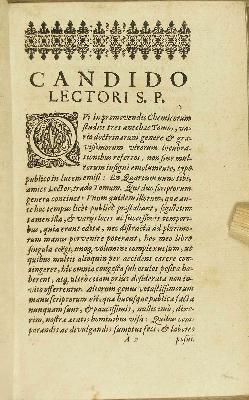 CANDIDO
LECTORI S. P.
QVi in promovendis Chemicorum
studiis tres antehac Tomos, va-
ria doctrinarum genere & gra-
vissimorum virorum lucubra-
tionibus refertos, non sine mul-
torum insigni emolumento, typo
publico in lucem emisi: En Quartum nunc tibi,
amice Lector, trado Tomum. Qui duo scriptorum
genera continet: Vnum quidem illorum, quæ an-
te hoc tempus licet publicè prostabant, sigillatim
tamen illa, & variis locis ac
bus, quia erant edita, nec distracta ad plurimo-
rum manus pervenire poterant, hoc meo libro
singula collegi, unoq; volumine complexus sum, ut
quibus multis alioquin per accidens carere con-
tingeret, hic omnia congesta sub oculos posita ha-
berent, atq; ulterius tam prius desiderata non in-
vito offerentur. Alterum genus vetustissimorum
manuscriptorum est, quæ hucusque publica facta
nunquam sunt, & paucissimis, multis
rim, nostra ætate hominibus visa: Quibus com-
parandis ac divulgandis sumptus feci, & labores
A 2 posui.